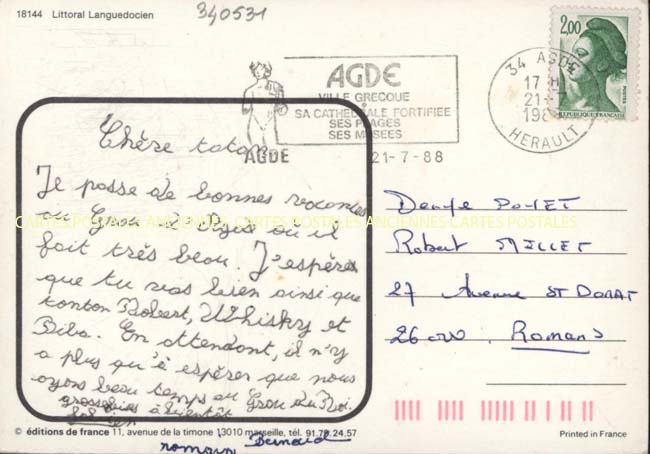 18144 Littoral Languedocien
340531
2,00
POSTES
REPUBLIQUE FRANÇAISE
AGDE
VILLE GRECQUE
SA CATHEDRALE FORTIFIEE
SES PLAGES
SES MUSEES
AGDE
21-7-88
34 AGDE
17 H
21-7
198
HERAULT
Chère taton
Je passe de bonnes vacances
au Grau d'Agde où il
fait très beau. J'espère
que tu vas bien ainsi que
tonton Robert, Whisky et
Biba. En attendant, il n'y
a plus qu'à espérer que nous
ayons beau temps au Grau du Roi.
grosses bises à bientôt
romain Bernard
CARTES POSTALES ANCIENNES CARTES POSTALES ANCIENNES CARTES POSTALES
Robert MILLET
27 Avenue ST DONAT
26000 Romans
© éditions de france 11, avenue de la timone 13010 marseille, tél. 91.79.24.57
Printed in France